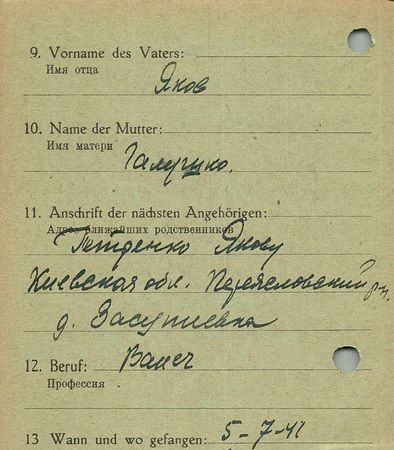 9. Vorname des Vaters:
Имя отца
Яков
10. Name der Mutter:
Имя матери
Галушко.
11. Anschrift der nächsten Angehörigen:
Адрес ближайших родственников
Петренко Якову
Киевская обл. Переясловский рн.
д.
12. Beruf: Bauer
Профессия
13 Wann und wo gefangen: 5-7-41